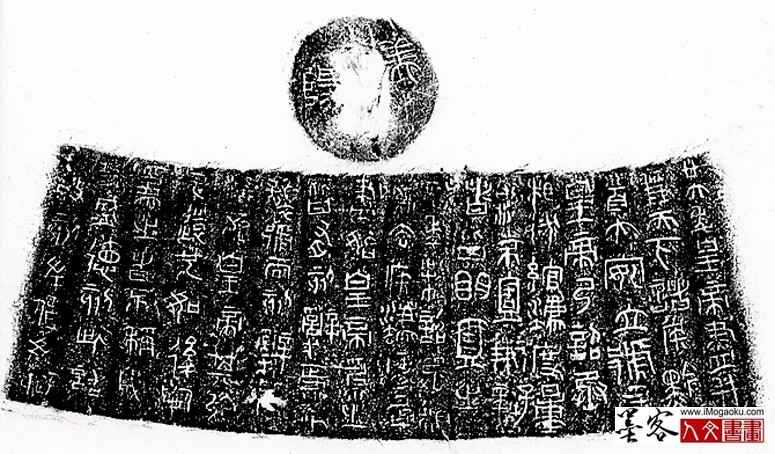 美陽
廿六年皇帝盡并
兼天下諸侯黔
首大安立號爲
皇帝乃詔丞
相狀綰法度量
則不壹歉疑
者皆明壹之
元年制詔丞相
斯去疾法度量
盡始皇帝爲之
皆有刻辭焉今
襲號而刻辭不
稱始皇帝其於
久遠也如後嗣
爲之者不稱成
功盛德刻此詔
故刻左使毋疑
墨客
www.iMogaoku.com
人文書畫